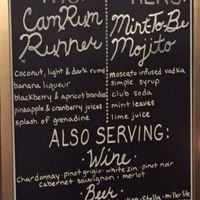 CamRum
Runner
Coconut, light & dark rums
banana liqueur
blackberry & apricot brandies
pineapple & cranberry juices
splash of grenadine
Mint-To-Be
Mojito
moscato infused vodka
simple syrup
club soda
mint leaves
lime juice
ALSO SERVING:
Wine
Chardonnay · pinot grigio · white zin · pinot noir
cabernet sauvignon · merlot
Beer
Stella · miller lite